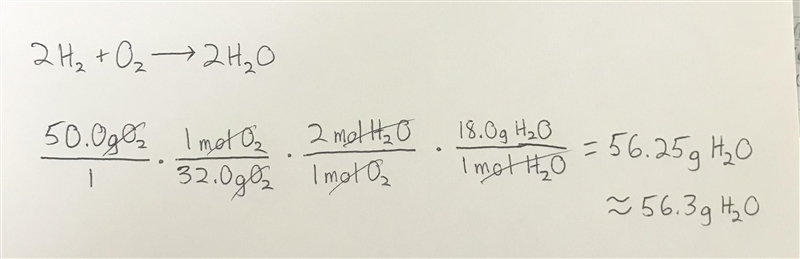 2H₂ + O₂ ⟶ 2H₂O
50.0gO₂/1 · 1molO₂/32.0gO₂ · 2molH₂O/1molO₂ · 18.0gH₂O/1molH₂O = 56.25gH₂O
≈ 56.3gH₂O